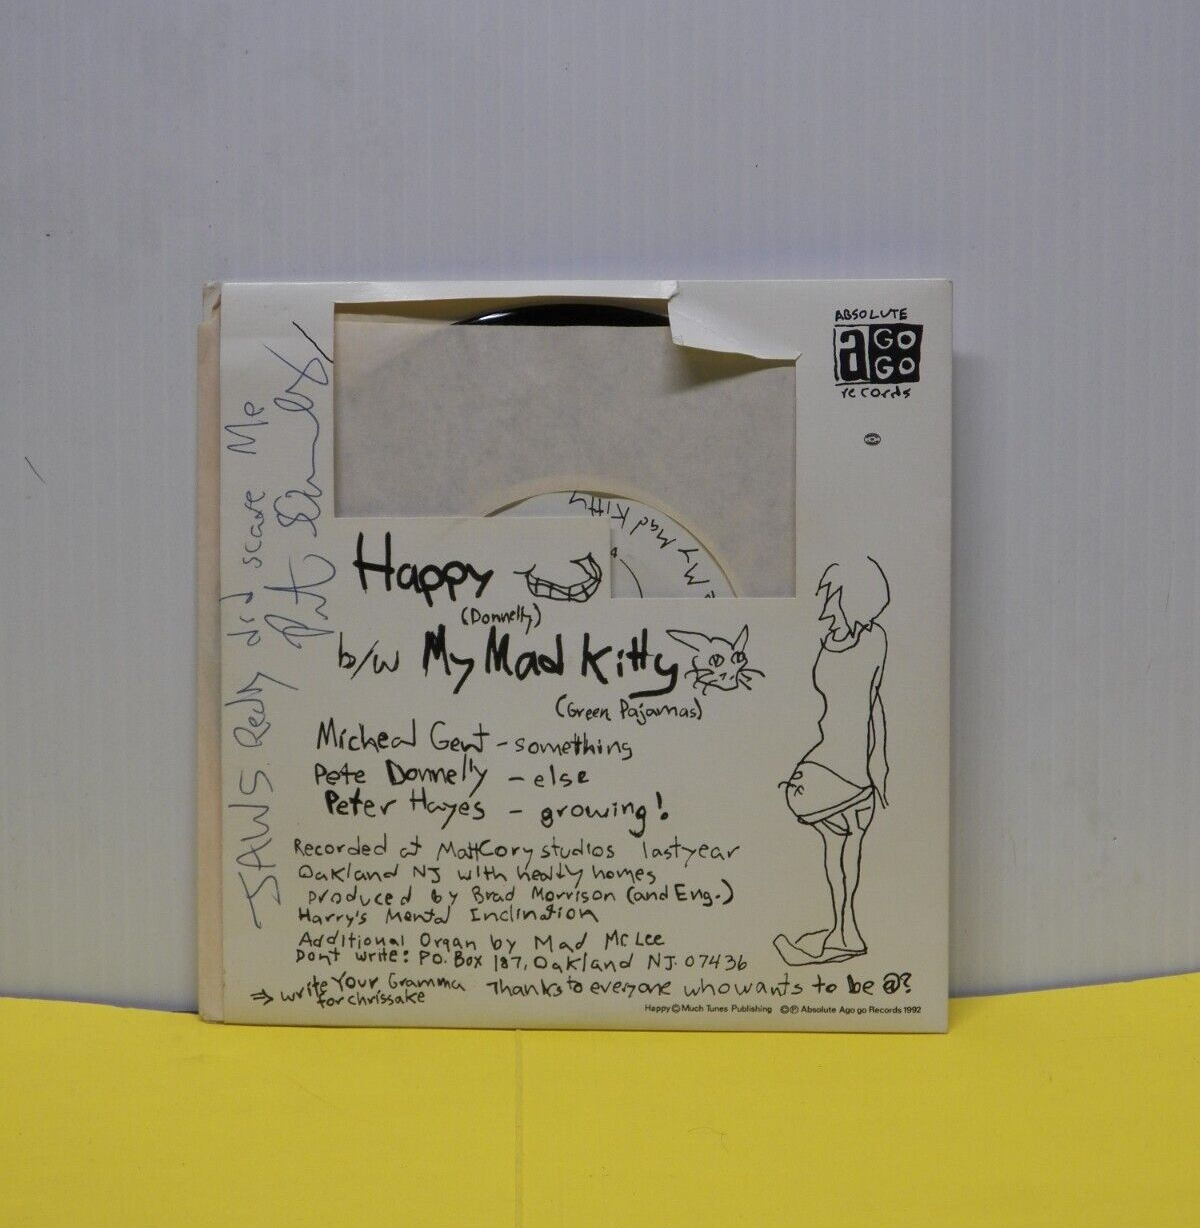 ABSOLUTE
a GO GO
records
My Mad Kitty
Happy
(Donnelly)
b/w My Mad Kitty
(Green Pajamas)
Micheal Gent - something
Pete Donnelly - else
Peter Hayes - growing!
Recorded at MattCory studios last year
Oakland NJ with healty homes
produced by Brad Morrison (and Eng.)
Harry's Mental Inclination
Additional Organ by Mad McLee
Dont write: P.O. Box 187, Oakland NJ. 07436
⇒ write Your Gramma for chrissake
Thanks to everyone who wants to be @?
Happy © Much Tunes Publishing © ℗ Absolute Ago go Records 1992
JAWS Really did scare Me